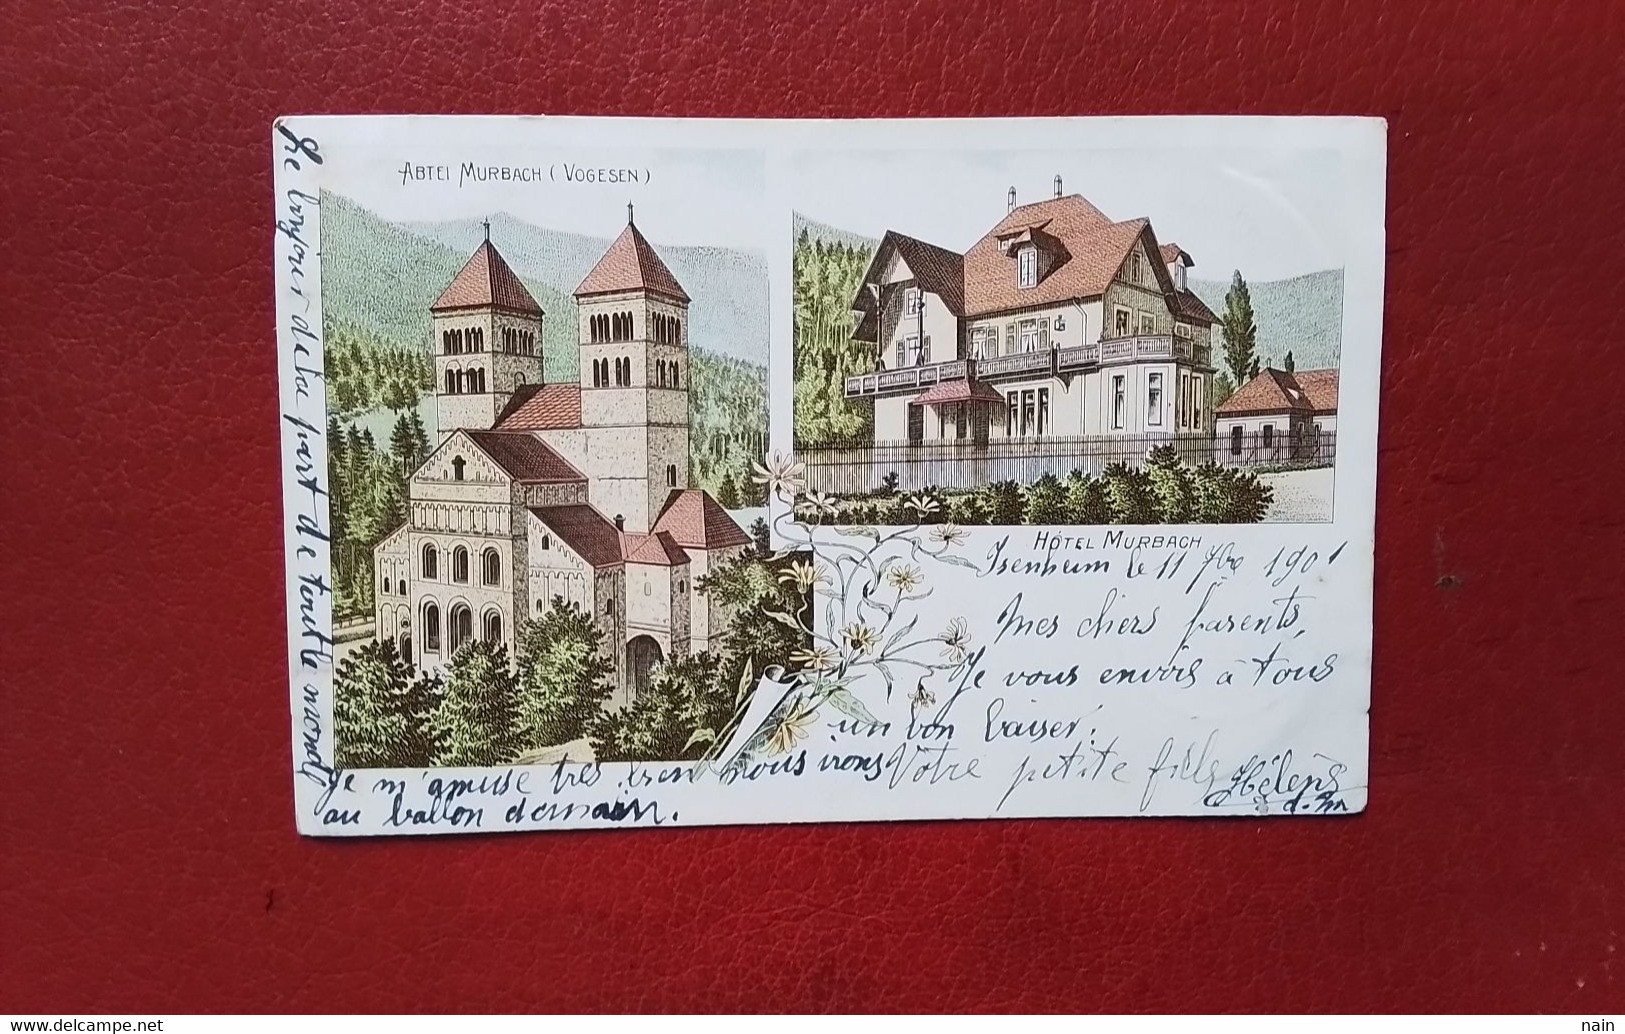 ABTEI MURBACH ( VOGESEN )
HÔTEL MURBACH
Isenheim le 11 7bre 1901
Mes chers parents,
Je vous envois à tous
un bon baiser.
Votre petite fille
Hélène
Je m'amuse très bien nous irons
au ballon demain.
Le bonjour de la part de toute le monde
www.delcampe.net
nain